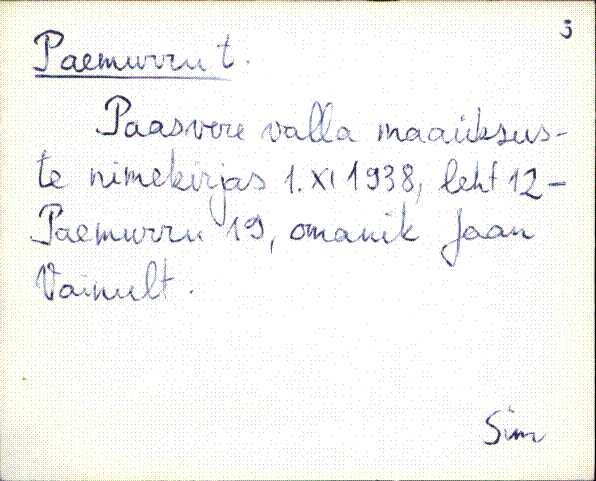 3
Paemurru t.
Paasvere valla maaüksus-
te nimekirjas 1. XI 1938, leht 12-
Paemurru 19, omanik Jaan
Vainult.
Sim